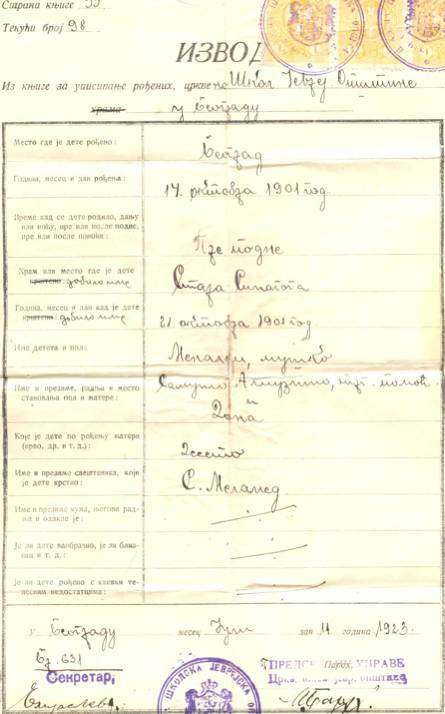 Страна књиге 55
Текући број 98
ИЗВОД
Из књиге за уписивање рођених, црквено Школ. Јеврej Општине
храма у Београду
Место где је дете рођено: Београд
Година, месец и дан рођења: 14. октобра 1901 год.
Време кад се дете родило, дању
или ноћу, пре или после подне,
пре или после поноћи: Пре подне
Храм или место где је дете
крштено: добило име Стара Синагога
Година, месец и дан кад је дете
крштено: добило име 21. октобра 1901 год
Име детета и пол: мушко
Име и презиме, радња и место
становања оца и матере:
Које је дете по рођењу матери
(прво, др. и т. д.): Десето
Име и презиме свештеника, који
је дете крстио: С. Меламед
Име и презиме кума, његова рад-
ња и одакле је:
Је ли дете ванбрачно, је ли близ-
нац и т. д.:
Је ли дете рођено с каквим те-
лесним недостатцима:
у Београду месец Јули дан 14 година 1923.
Бр. 631
Секретар,
УПРАВЕ
ШКОЛСКА ЈЕВРЕЈСКА